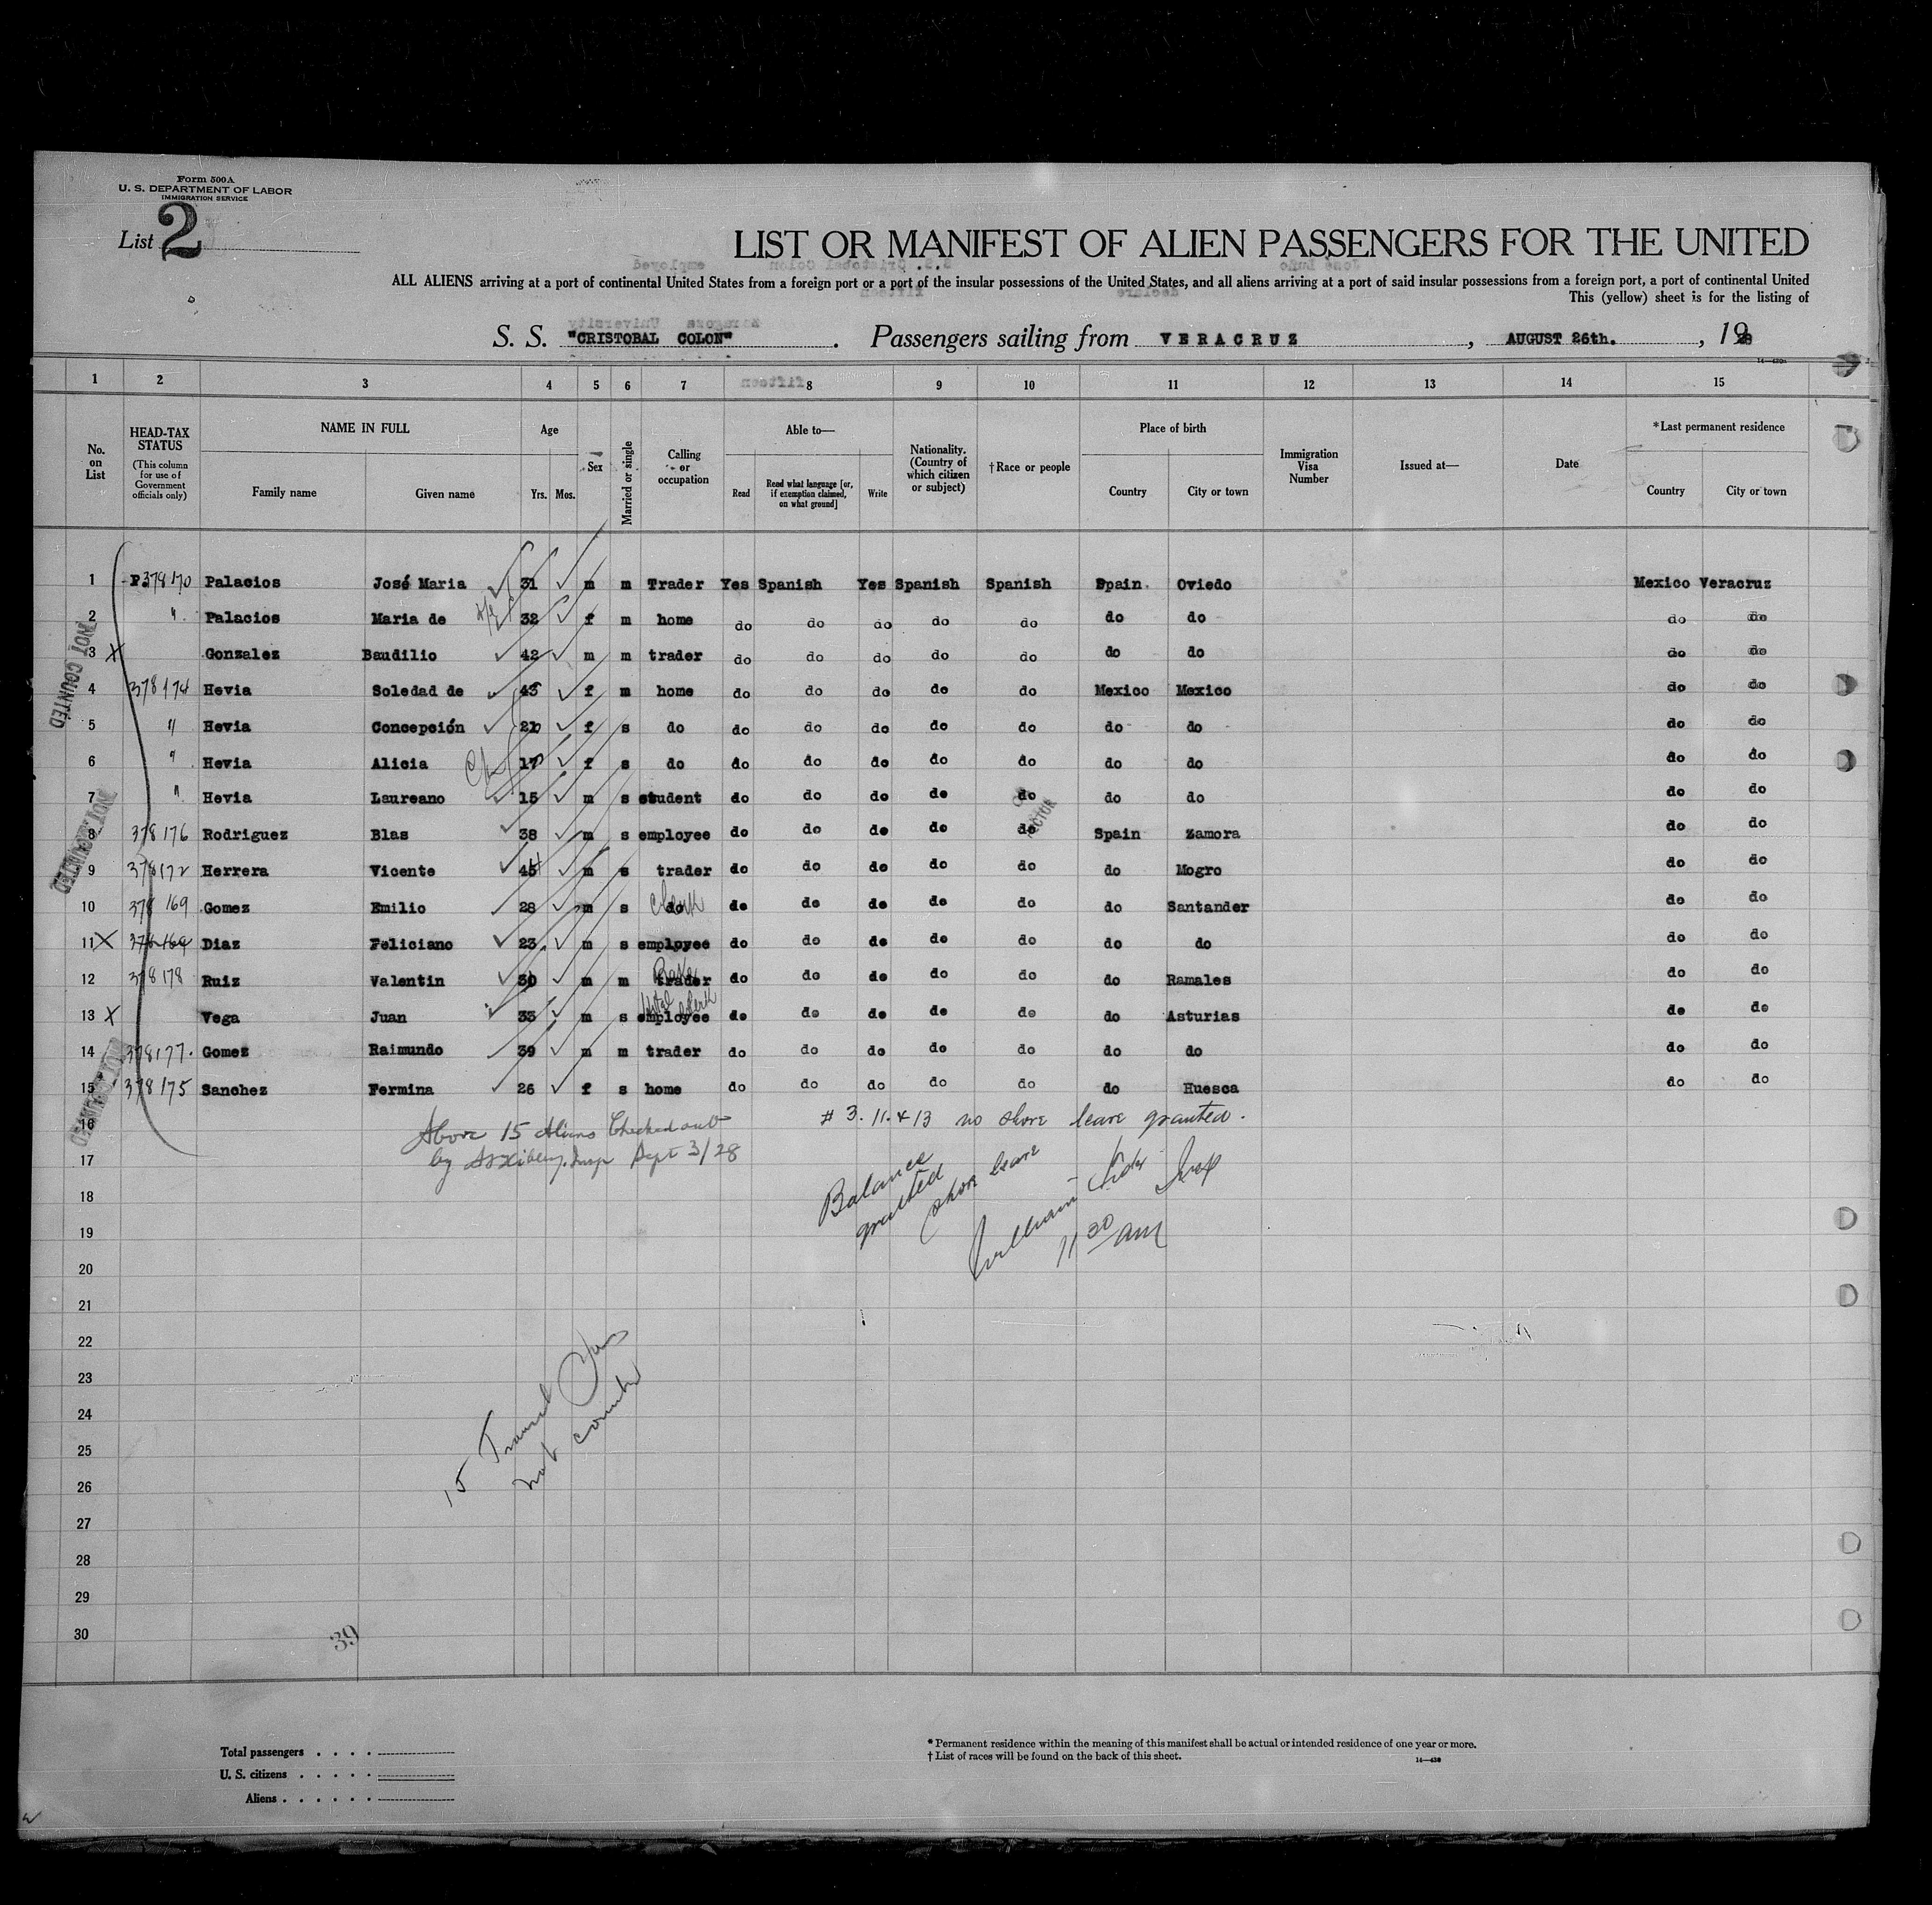 Form 500A
U. S. DEPARTMENT OF LABOR
IMMIGRATION SERVICE
List 2
LIST OR MANIFEST OF ALIEN PASSENGERS FOR THE UNITED
ALL ALIENS arriving at a port of continental United States from a foreign port or a port of the insular possessions of the United States, and all aliens arriving at a port of said insular possessions from a foreign port, a port of continental United
This (yellow) sheet is for the listing of
S. S. "CRISTOBAL COLON". Passengers sailing from VERACRUZ, AUGUST 26th., 1928
14—430
1 2 3 4 5 6 7 8 9 10 11 12 13 14 15
No. on List
HEAD-TAX STATUS
(This column for use of Government officials only)
NAME IN FULL
Family name Given name
Age
Yrs. Mos.
Sex
Married or single
Calling or occupation
Able to—
Read Read what language [or, if exemption claimed, on what ground] Write
Nationality. (Country of which citizen or subject)
†Race or people
Place of birth
Country City or town
Immigration Visa Number
Issued at—
Date
*Last permanent residence
Country City or town
1 P.378170 Palacios José Maria 31 m m Trader Yes Spanish Yes Spanish Spanish Spain Oviedo Mexico Veracruz
2 " Palacios Maria de 32 f m home do do do do do do do do do
3 X Gonzalez Baudilio 42 m m trader do do do do do do do do do
4 378174 Hevia Soledad de 43 f m home do do do do do Mexico Mexico do do
5 " Hevia Concepción 21 f s do do do do do do do do do do
6 " Hevia Alicia 17 f s do do do do do do do do do do
7 " Hevia Laureano 15 m s student do do do do do do do do do
8 378176 Rodriguez Blas 38 m s employee do do do do do Spain Zamora do do
9 378172 Herrera Vicente 45 m s trader do do do do do do Mogro do do
10 378169 Gomez Emilio 28 m s do Clerk do do do do do do Santander do do
11 X 378169 Diaz Feliciano 23 m s employee do do do do do do do do do
12 378178 Ruiz Valentin 30 m m trader do do do do do do Ramales do do
13 X Vega Juan 33 m s employee do do do do do do Asturias do do
14 378177. Gomez Raimundo 39 m m trader do do do do do do do do do
15 378175 Sanchez Fermina 26 f s home do do do do do do Huesca do do
NOT COUNTED
NOT COUNTED
NOT COUNTED
16
Above 15 Aliens Checked out
by Insp Sept 3/28
# 3. 11. & 13 no shore leave granted.
Balance
granted
shore leave
William Insp
11 30 AM
17
18
19
20
21
22
23
24
25
26
27
28
29
30
15 Transit
not
39
Total passengers
U. S. citizens
Aliens
* Permanent residence within the meaning of this manifest shall be actual or intended residence of one year or more.
† List of races will be found on the back of this sheet.
14—430